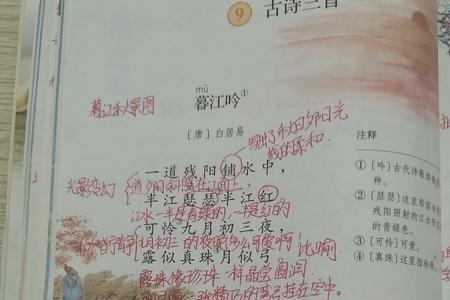 9 古诗三首
mù
暮江吟①
暮江秋景图
[唐]白居易
写出了秋日夕阳光
线的柔和
注释
一道残阳铺水中，
①〔吟〕古代诗歌体
种。
光影变幻
半江瑟瑟半江红。
②〔瑟瑟〕这里形容
残阳照射的江水
的青绿色。
江水一半是青绿的，一半是红的。
可怜九月初三夜，
③〔可怜〕可爱。
九月初三的夜晚多么可爱啊
比喻
露似真珠月似弓。
④〔真珠〕这里指珍珠
露珠像珍珠一样晶莹圆润